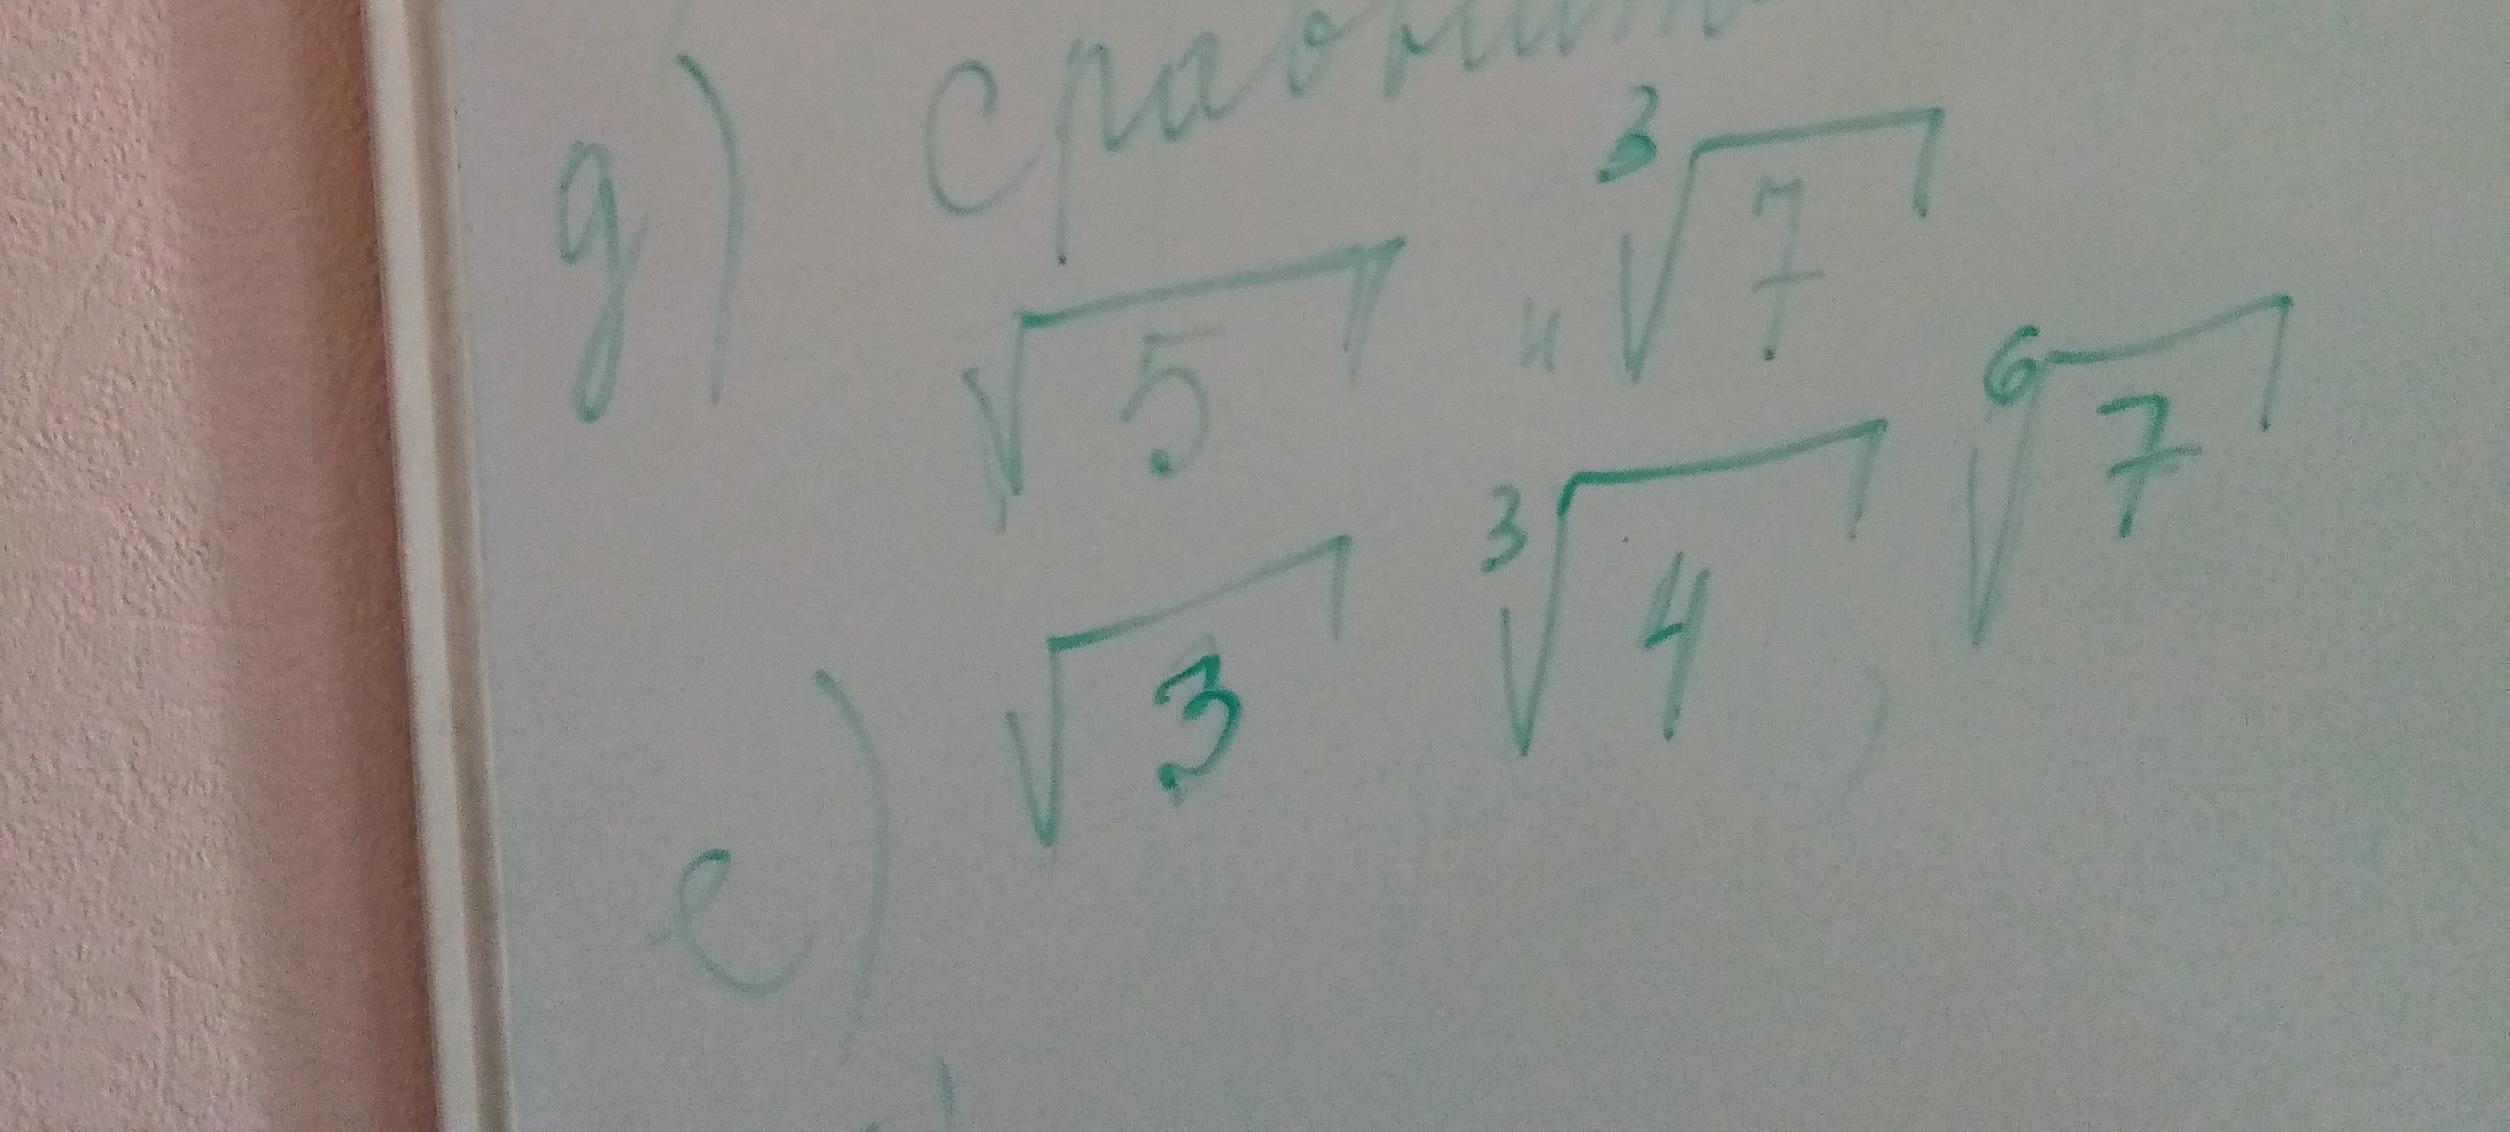 д) Сравнить
√5 и ³√7
е) √3 ³√4, ⁶√7